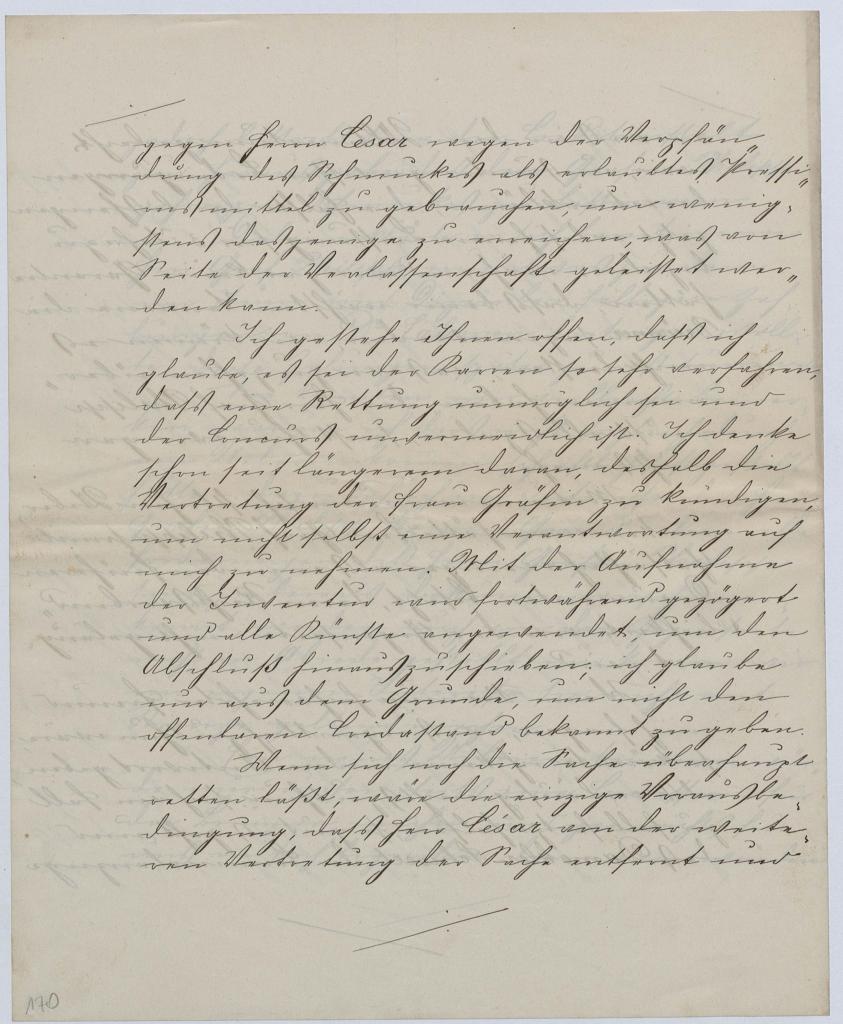 gegen Herrn Cesar wegen der Verpfän„
dung des Schmuckes als erlaubtes Pressi„
onsmittel zu gebrauchen, um wenig„
stens dasjenige zu erreichen, was von
Seite der Verlassenschaft geleistet wer„
den kann.
Ich gestehe Ihnen offen, dass ich
glaube, es sei der Karren so sehr verfahren,
dass eine Rettung unmöglich sei und
der Concurs unvermeidlich ist. Ich denke
schon seit längerem daran, deshalb die
Vertretung der Frau Gräfin zu kündigen,
um nicht selbst eine Verantwortung auf
mich zu nehmen. Mit der Aufnahme
der Inventur wird fortwährend gezögert
und alle Künste angewendet, um den
Abschluß hinauszuschieben; ich glaube
nur aus dem Grunde, um nicht den
offenbaren Cridastand bekannt zu geben.
Wenn sich noch die Sache überhaupt
retten läßt, wäre die einzige Vorausbe„
dingung, dass Herr César von der weite„
ren Vertretung der Sache entfernt und
170